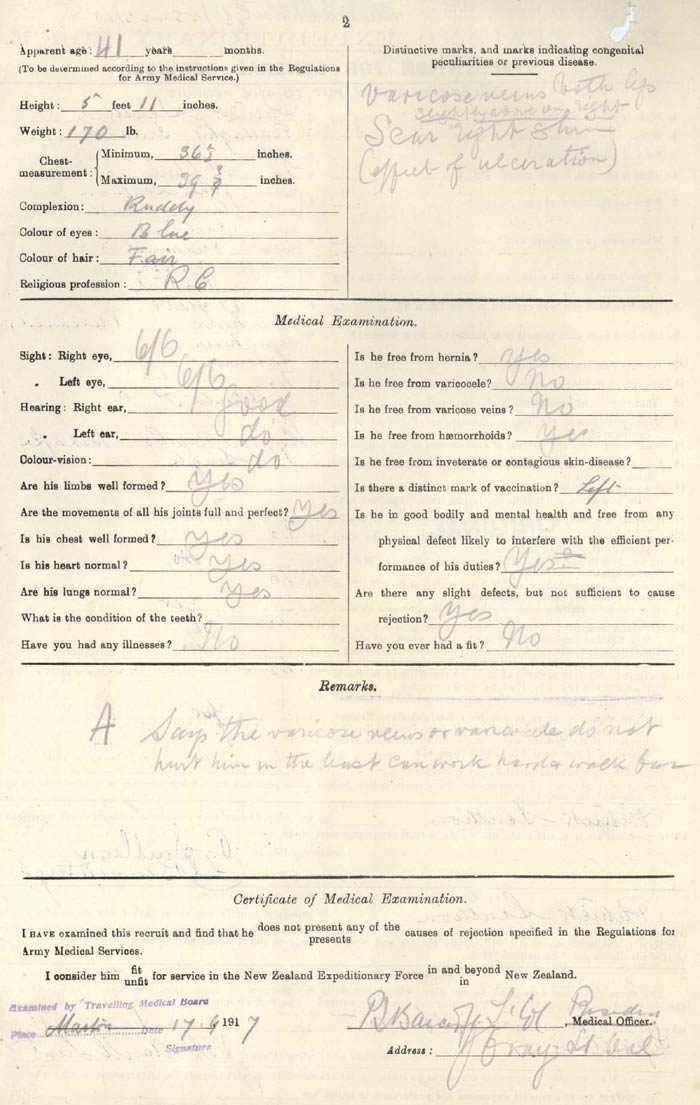 2
Apparent age: 41 years months.
(To be determined according to the instructions given in the Regulations
for Army Medical Service.)
Height: 5 feet 11 inches.
Weight: 170 lb.
Chest-measurement: { Minimum, 36½ inches.
Maximum, 39 inches.
Complexion: Ruddy
Colour of eyes: Blue
Colour of hair: Fair
Religious profession: R.C
Distinctive marks, and marks indicating congenital
peculiarities or previous disease.
Varicose veins both legs
slightly above on right
Scar right shin
(effect of ulceration)
Medical Examination.
Sight: Right eye, 6/6
" Left eye, 6/6
Hearing: Right ear, good
" Left ear, do
Colour-vision: do
Are his limbs well formed? Yes
Are the movements of all his joints full and perfect? Yes
Is his chest well formed? Yes
Is his heart normal? Yes
Are his lungs normal? Yes
What is the condition of the teeth?
Have you had any illnesses? No
Is he free from hernia? Yes
Is he free from varicocele? No
Is he free from varicose veins? No
Is he free from hæmorrhoids? Yes
Is he free from inveterate or contagious skin-disease?
Is there a distinct mark of vaccination? Left
Is he in good bodily and mental health and free from any
physical defect likely to interfere with the efficient per-
formance of his duties? Yes
Are there any slight defects, but not sufficient to cause
rejection? Yes
Have you ever had a fit? No
Remarks.
A Says the varicose veins or varicocele do not
hurt him in the least can work hard & walk far
Certificate of Medical Examination.
I HAVE examined this recruit and find that he does not present any of the causes of rejection specified in the Regulations for
presents
Army Medical Services.
I consider him fit for service in the New Zealand Expeditionary Force in and beyond New Zealand.
unfit in
Examined by Travelling Medical Board
Place Marton Date 17-6 1917
Signature
Lt Col President, Medical Officer.
Address: Lt Col